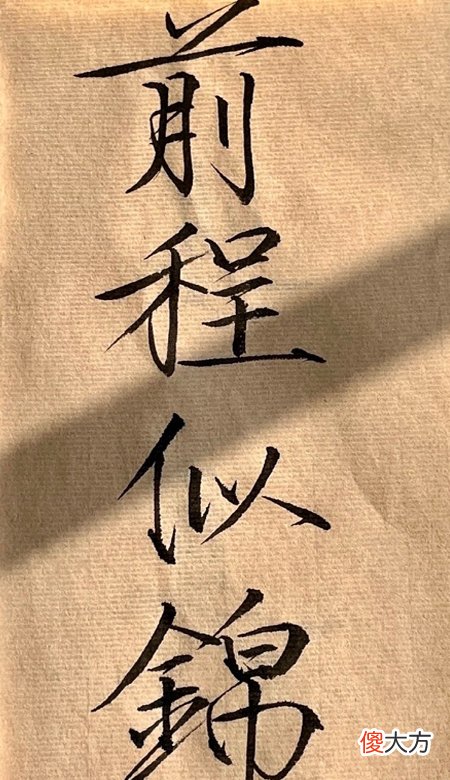 前程似錦
傻大方